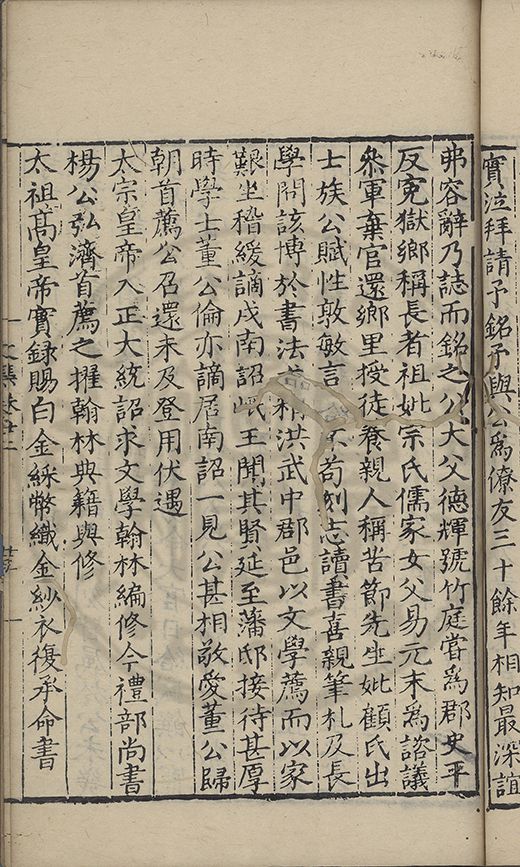 實泣拜請予銘予與公爲僚友三十餘年相知最深誼
弗容辭乃誌而銘之公大父德輝號竹庭嘗爲郡史平
反寃獄鄉稱長者祖妣宗氏儒家女父易元末爲諮議
叅軍棄官還鄉里授徒養親人稱苦節先生妣顧氏出
士族公賦性敦敏言 不苟刻志讀書喜親筆札及長
學問該博於書法 稱洪武中郡邑以文學薦而以家
艱坐稽緩謫戍南詔岷王聞其賢延至藩邸接待甚厚
時學士董公倫亦謫居南詔一見公甚相敬愛董公歸
朝首薦公召還未及登用伏遇
太宗皇帝入正大統詔求文學翰林編修今禮部尚書
楊公弘濟首薦之擢翰林典籍與修
太祖高皇帝實録賜白金綵幣織金紗衣復承命書